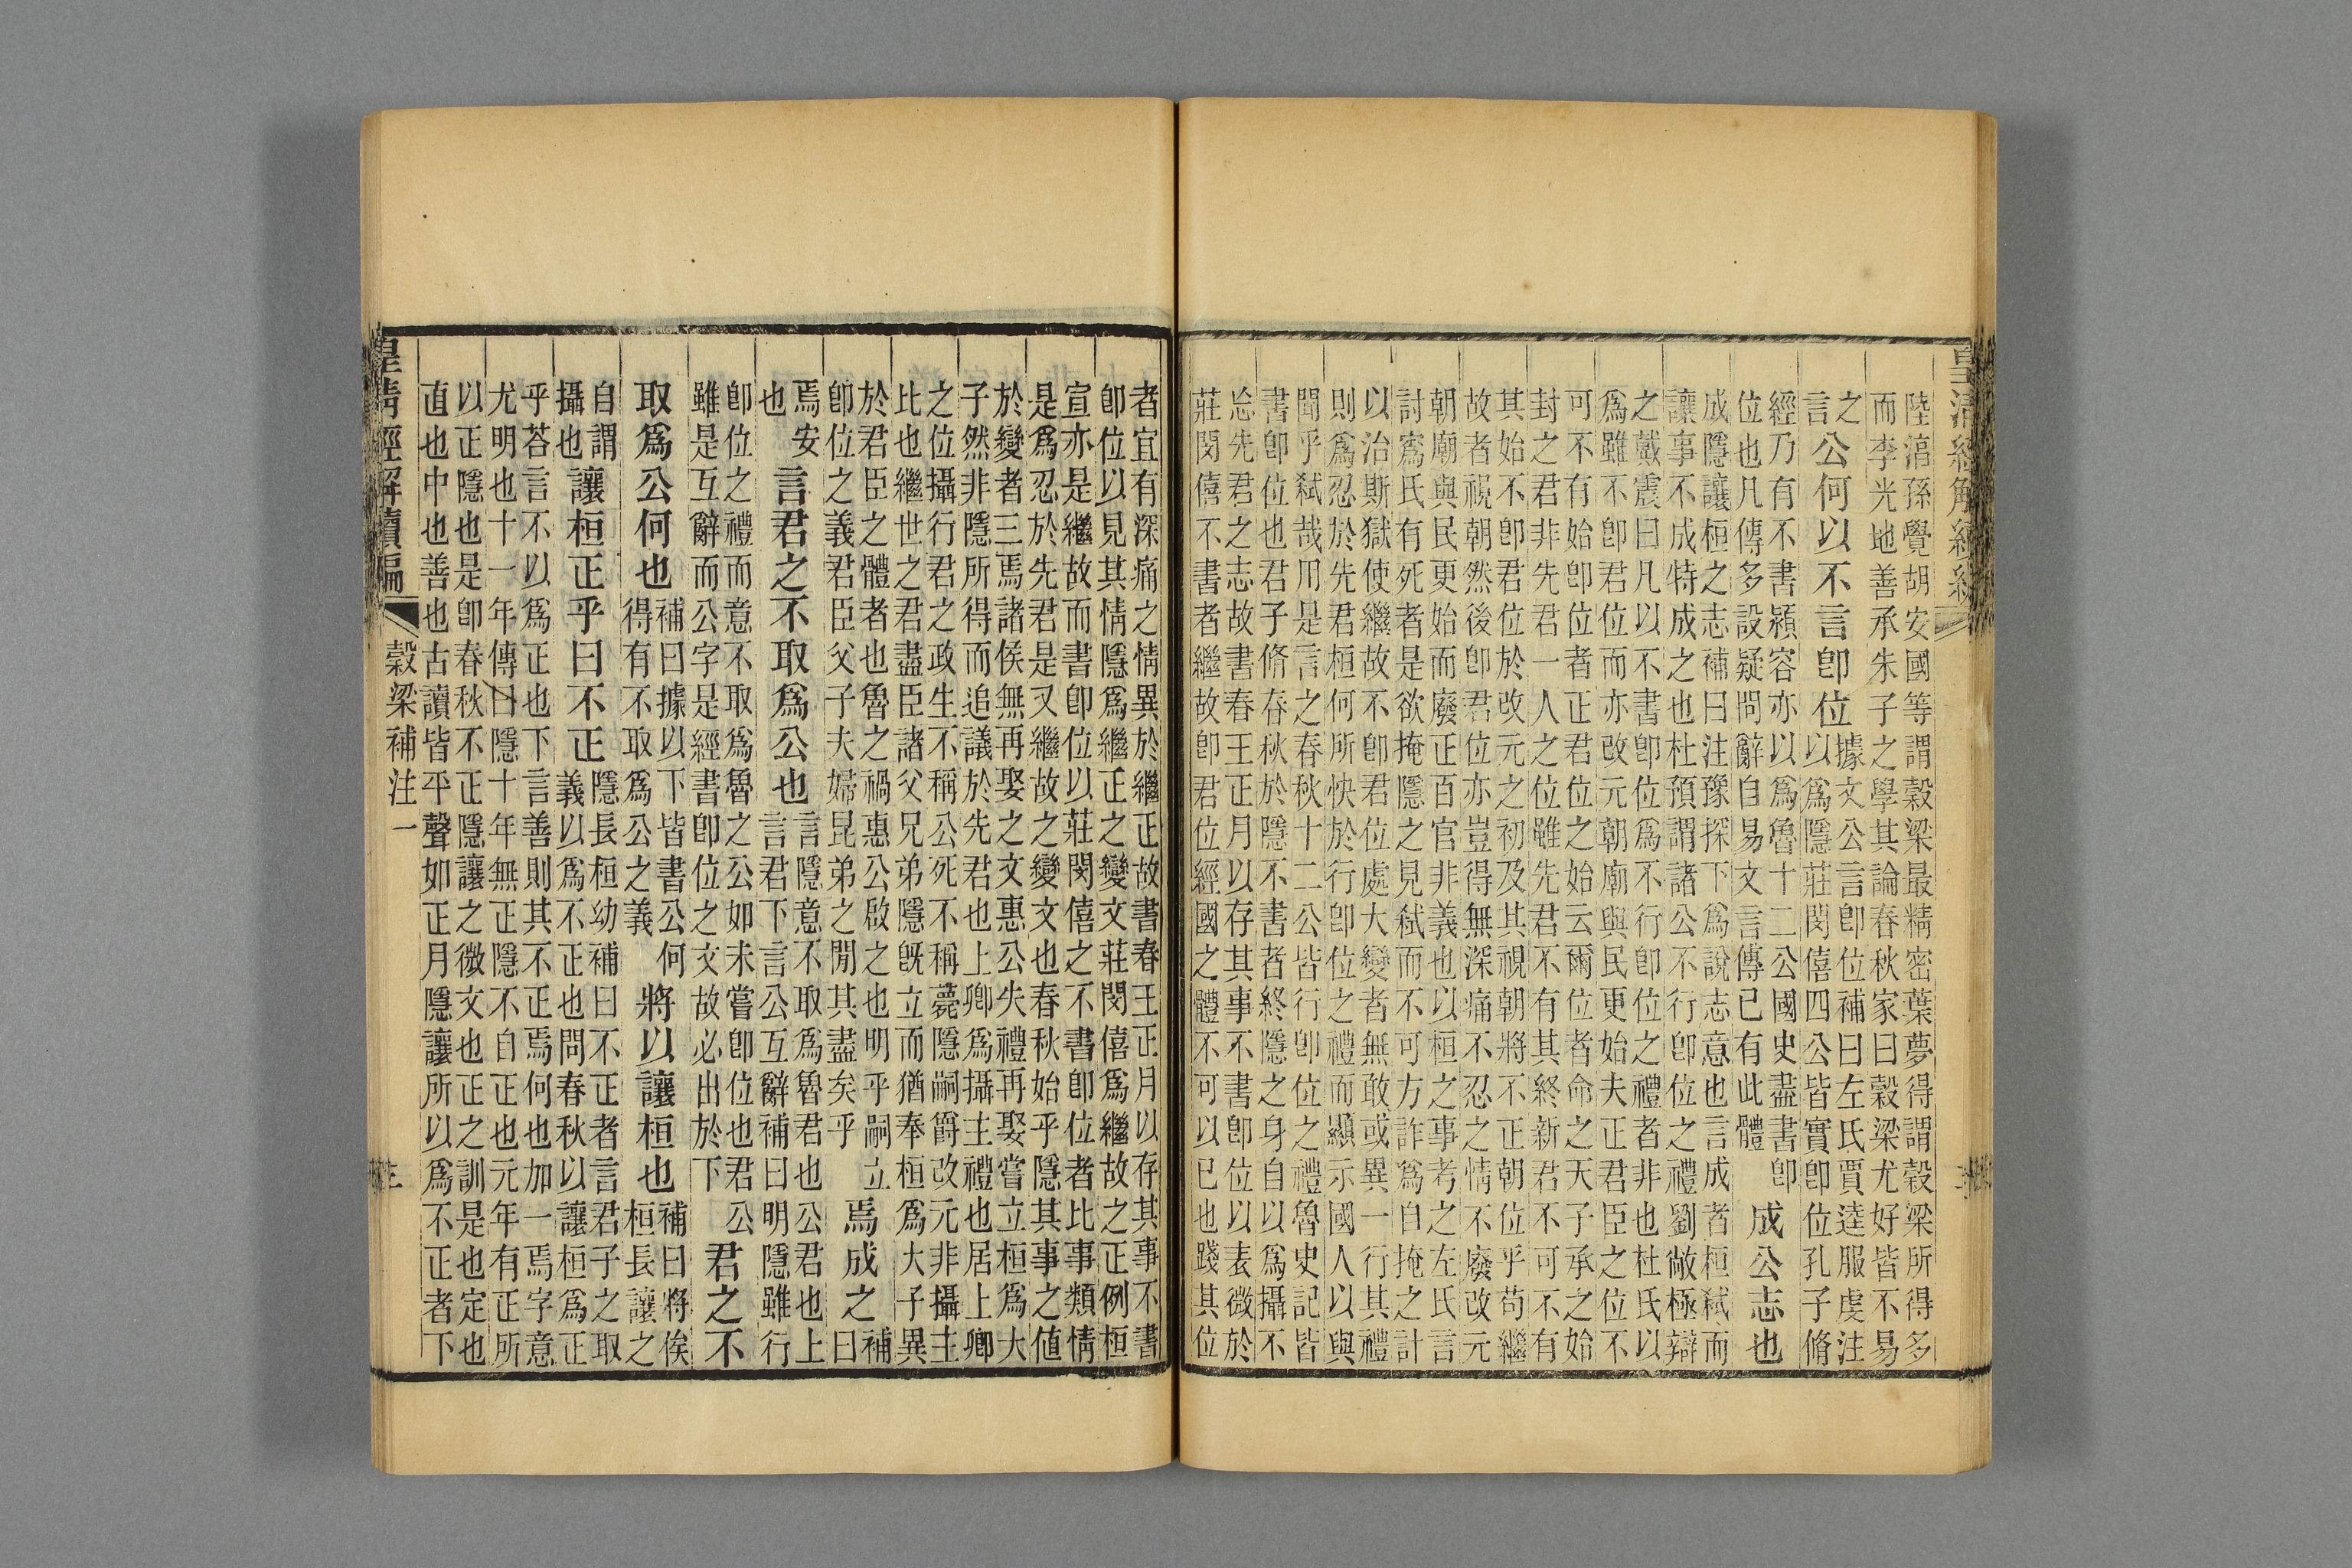 陸淳孫覺胡安國等謂穀梁最精密葉夢得謂穀梁所得多
而李光地善承朱子之學其論春秋家曰穀梁尤好皆不易
之言公何以不言卽位據文公言卽位補曰左氏賈逵服虔注以爲隱莊閔僖四公皆實卽位孔子脩
經乃有不書潁容亦以爲魯十二公國史盡書卽位也凡傳多設疑問辭自易文言傳已有此體成公志也
成隱讓桓之志補曰注豫探下爲說志意也言成者桓弑而
讓事不成特成之也杜預謂諸公不行卽位之禮劉敞極辯
之戴震曰凡以不書卽位爲不行卽位之禮者非也杜氏以
爲雖不卽君位而亦改元朝廟與民更始夫正君臣之位不
可不有始卽位者正君位之始云爾位者命之天子承之始
封之君非先君一人之位雖先君不有其終新君不可不有
其始不卽君位於改元之初及其視朝將不正朝位乎苟繼
故者視朝然後卽君位亦豈得無深痛不忍之情不廢改元
朝廟與民更始而廢正百官非義也以桓之事考之左氏言
討寪氏有死者是欲掩隱之見弑而不可方詐爲自掩之計
以治斯獄使繼故不卽君位處大變者無敢或異一行其禮
則爲忍於先君桓何所快於行卽位之禮而顯示國人以與
聞乎弑哉用是言之春秋十二公皆行卽位之禮魯史記皆
書卽位也君子脩春秋於隱不書者終隱之身自以爲攝不
忩先君之志故書春王正月以存其事不書卽位以表微於
莊閔僖不書者繼故卽君位經國之體不可以已也踐其位
者宜有深痛之情異於繼正故書春王正月以存其事不書
卽位以見其情隱爲繼正之變文莊閔僖爲繼故之正例桓
宣亦是繼故而書卽位以莊閔僖之不書卽位者比事類情
是爲忍於先君是又繼故之變文也春秋始乎隱其事之値
於變者三焉諸侯無再娶之文惠公失禮再娶嘗立桓爲大
子然非隱所得而追議於先君也上卿爲攝主禮也居上卿
之位攝行君之政生不稱公死不稱薨隱嗣爵改元非攝主
比也繼世之君盡臣諸父兄弟隱旣立而猶奉桓爲大子異
於君臣之體者也魯之禍惠公啟之也明乎嗣立卽位之義君臣父子夫婦昆弟之閒其盡矣乎焉成之補曰
焉安也言君之不取爲公也言隱意不取爲魯君也公君也上言君下言公互辭補曰明隱雖行
卽位之禮而意不取爲魯之公如未嘗卽位也君公雖是互辭而公字是經書卽位之文故必出於下君之不
取爲公何也補曰據以下皆書公何得有不取爲公之義將以讓桓也補曰將俟桓長讓之
自謂攝也讓桓正乎曰不正隱長桓幼補曰不正者言君子之取義以爲不正也問春秋以讓桓爲正
乎荅言不以爲正也下言善則其不正焉何也加一焉字意
尤明也十一年傳曰隱十年無正隱不自正也元年有正所
以正隱也是卽春秋不正隱讓之微文也正之訓是也定也
直也中也善也古讀皆平聲如正月隱讓所以爲不正者下
皇清經解續編 穀梁補注一